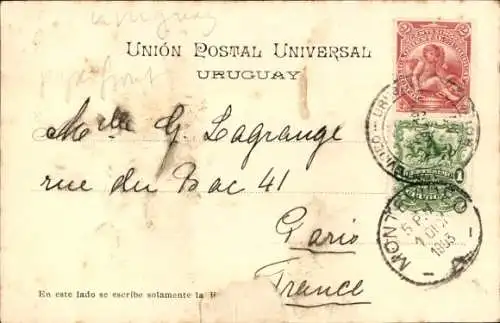 Uruguay
UNIÓN POSTAL UNIVERSAL
URUGUAY
Mlle G. Lagrange
rue du Bac 41
Paris
France
En este lado se escribe solamente la
2
1
MONTEVIDEO
5 P
1903